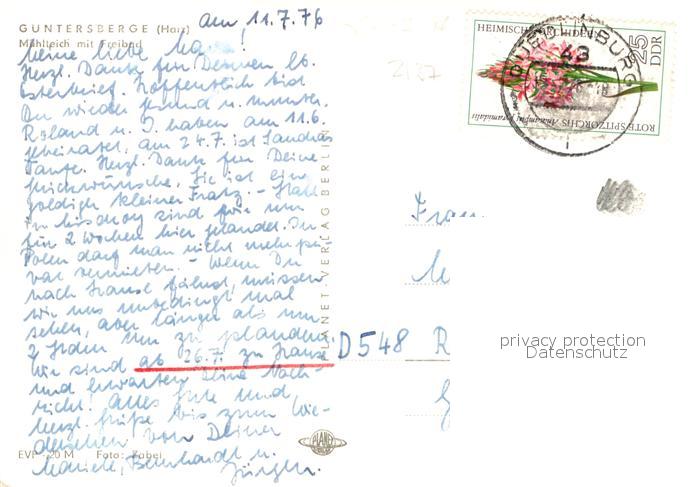 am 11.7.76
GÜNTERSBERGE (Harz)
Mühlteich mit Freibad
Meine liebe
Herzl. Dank für Deinen lb.
Osterbrief. Hoffentlich bist
Du wieder gesund u. munter.
Roland u. I. haben am 11.6.
geheiratet, am 24.7. ist Sandras
Taufe. Herzl. Dank für Deine
Glückwünsche, Sie ist ein
goldiger kleiner Fratz. - Statt
in sind wir nun
für 2 Wochen hier gelandet. In
Polen darf man nicht mehr pri-
vat vermieten. - Wenn Du
nach Hause fährst, müssen
wir uns unbedingt mal
sehen, aber länger als nur
2 Stden um zu plaudern
Wir sind ab 26.7. zu Hause
und erwarten Deine Nach-
richt. Alles Gute und
herzl. Grüße bis zum Wie-
dersehen von Deiner
Mariele, Bernhardt u.
Jürgen.
EVP -20 M Foto: Zabel
PLANET-VERLAG BERLIN
PLANET
HEIMISCHE ORCHIDEEN
25
DDR
ROTE SPITZORCHIS Anacamptis pyramidalis
QUEDLINBURG
43
Frau
D548 R
privacy protection
Datenschutz